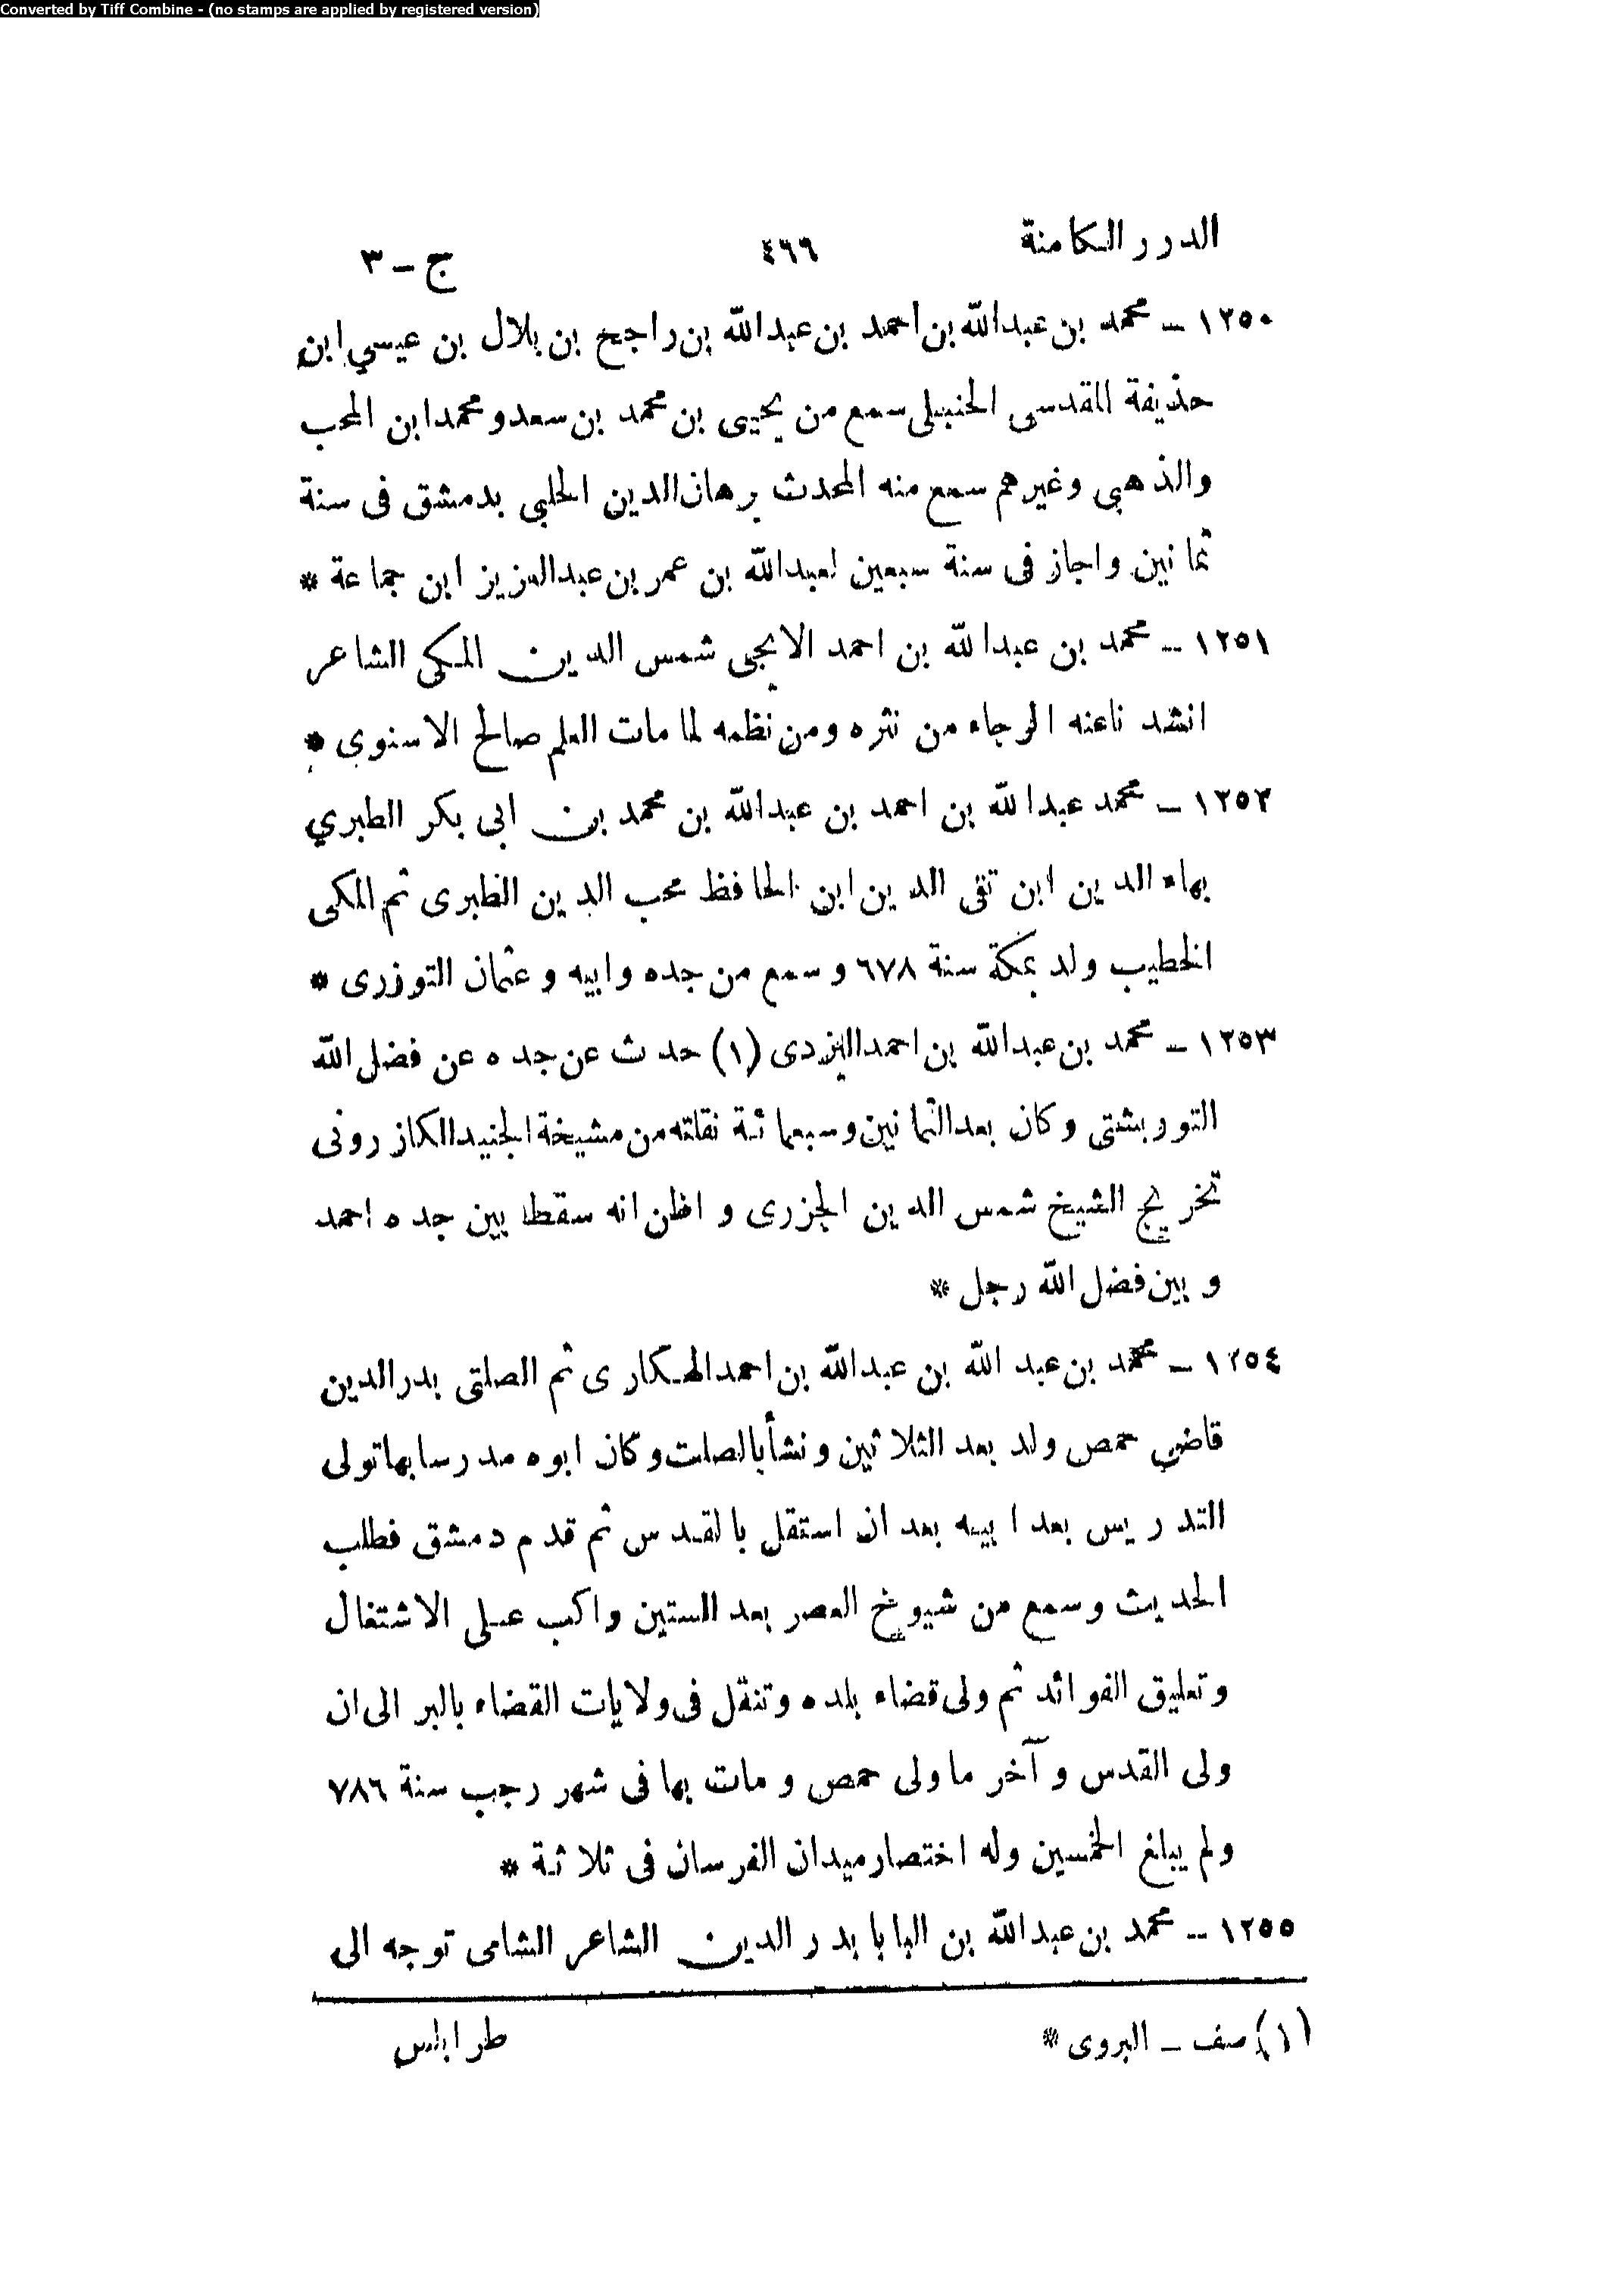 Converted by Tiff Combine - (no stamps are applied by registered version)
الدرر الكامنة ٤٦٦ ج – ٣
١٢٥٠ – محمد بن عبدالله بن احمد بن عبدالله بن راجح بن بلال بن عيسي ابن
حذيفة المقدسى الحنبلى سمع من يحيى بن محمد بن سعد و محمد ابن المحب
والذهبى وغيرهم سمع منه المحدث برهان الدين الحلبى بدمشق فى سنة
ثمانين واجاز فى سنة سبعين لعبدالله بن عمر بن عبدالعزيز ابن جماعة *
١٢٥١ – محمد بن عبدالله بن احمد الايجى شمس الدين المكى الشاعر
انشد ناعنه الرجاء من نثره ومن نظمه لما مات العلم صالح الاسنوى *
١٢٥٢ – محمد عبدالله بن احمد بن عبدالله بن محمد بن ابى بكر الطبري
بهاء الدين ابن تقى الدين ابن الحافظ محب الدين الطبرى ثم المكى
الخطيب ولد بمكة سنة ٦٧٨ وسمع من جده وابيه وعثمان التوزرى *
١٢٥٣ – محمد بن عبدالله بن احمد اليزدى (١) حدث عن جده عن فضل الله
التوربشتى وكان بعد الثمانين وسبعمائة نقلته من مشيخة الجنيد الكازرونى
تخريج الشيخ شمس الدين الجزرى واظن انه سقط بين جده احمد
وبين فضل الله رجل *
١٢٥٤ – محمد بن عبد الله بن عبدالله بن احمد الهكارى ثم الصلتى بدرالدين
قاضي حمص ولد بعد الثلاثين ونشأ بالصلت وكان ابوه مدرسا بها تولى
التدريس بعد ابيه بعد ان استقل بالقدس ثم قدم دمشق فطلب
الحديث وسمع من شيوخ العصر بعد الستين واكب على الاشتغال
وتعليق الفوائد ثم ولى قضاء بلده وتنقل فى ولايات القضاء بالبر الى ان
ولى القدس وآخر ما ولى حمص ومات بها فى شهر رجب سنة ٧٨٦
ولم يبلغ الخمسين وله اختصار ميدان الفرسان فى ثلاثة *
١٢٥٥ – محمد بن عبدالله بن البابا بدر الدين الشاعر الشامى توجه الى
(١) صف – البروى *
طرابلس